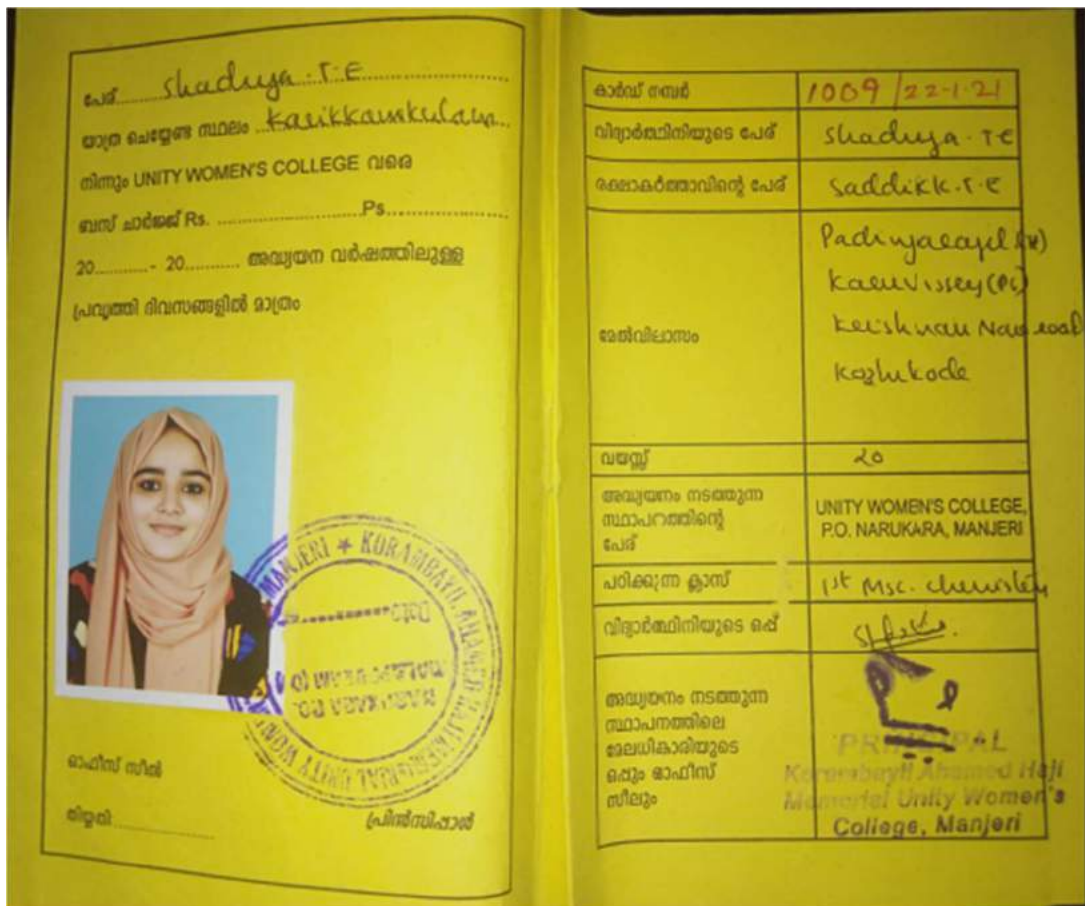 പേര്........Shaduya. T. E........
യാത്ര ചെയ്യേണ്ട സ്ഥലം ..Karikkamkulam..
നിന്നും UNITY WOMEN'S COLLEGE വരെ
ബസ് ചാർജ്ജ് Rs. ........................Ps......................
20........... - 20........... അദ്ധ്യയന വർഷത്തിലുള്ള
പ്രവൃത്തി ദിവസങ്ങളിൽ മാത്രം
MANJERI * KORAMBAYIL AHAMED HAJI MEMORIAL UNITY WOMEN'S
Date
NARUKARA PO.
ഓഫീസ് സീൽ
തിയ്യതി:.....................
പ്രിൻസിപ്പാൾ
കാർഡ് നമ്പർ 1009/22-1-21
വിദ്യാർത്ഥിനിയുടെ പേര് Shaduya. T E
രക്ഷാകർത്താവിന്റെ പേര് Saddikk. T. E
മേൽവിലാസം
Padinjarayil (H)
Karuvissey (Po)
Krishnan Nair road
Kozhikode
വയസ്സ് 20
അദ്ധ്യയനം നടത്തുന്ന
സ്ഥാപറത്തിന്റെ
പേര്
UNITY WOMEN'S COLLEGE,
P.O. NARUKARA, MANJERI
പഠിക്കുന്ന ക്ലാസ് 1st Msc. chemistry
വിദ്യാർത്ഥിനിയുടെ ഒപ്പ്
അദ്ധ്യയനം നടത്തുന്ന
സ്ഥാപനത്തിലെ
മേലധികാരിയുടെ
ഒപ്പും ഓഫീസ്
സീലും
PRINCIPAL
Korambayil Ahamed Haji
Memorial Unity Women's
College, Manjeri